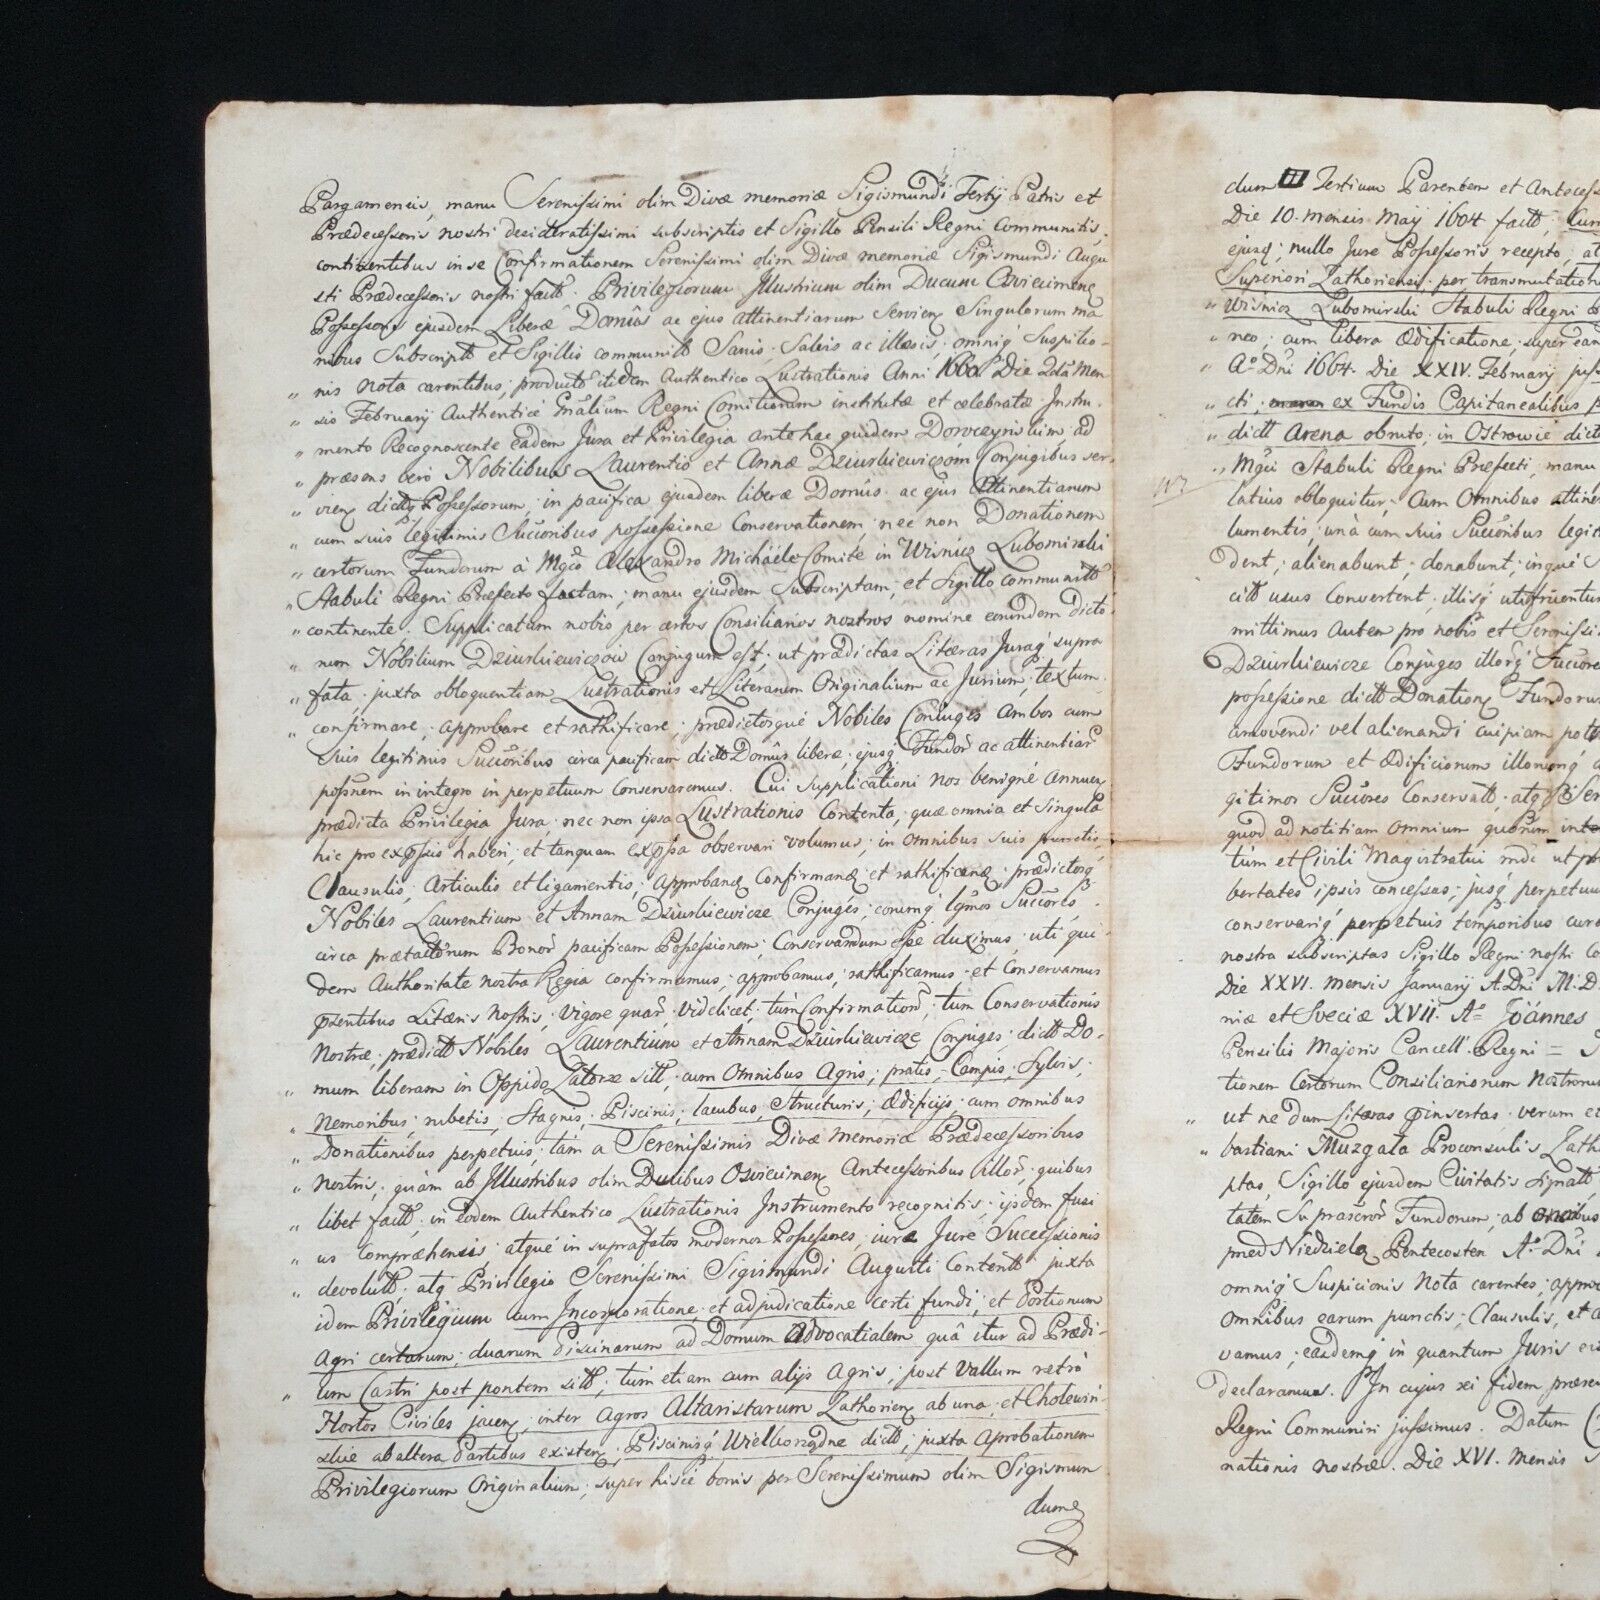 Pargameneis, manu Serenissimi olim Divæ memoriæ Sigismundi Tertij Patris et
Prædecessoris nostri desideratissimi subscriptis et Sigillo Pensili Regni Communitis,
continentibus in se Confirmationem Serenissimi olim Divæ memoriæ Sigismundi Augu
sti Prædecessoris nostri factt. Privilegiorum Illustrium olim Ducum Osviecimen
Possessorū ejusdem Liberæ Domûs ac ejus attinentiarum Servien Singulorum ma
nibus Subscriptt et Sigillis communitt Sanis Salvis ac illæsis, omniq Suspitio-
„ nis nota carentibus; producto itidem Authentico Lustrationis Anni 1660 Die 2da Men
„ sis February Authenticè Gnãlium Regni Comitiorum institutæ et celebratæ Instru.
„ mento Recognoscente eadem Jura et Privilegia antehac quidem ad
„ præsens verò Nobilibus Laurentio et Annæ Dziurkiewiczom Conjugibus ser-
„ vien dictt Possessorum, in pacifica ejusdem liberæ Domûs ac ejus Attinentiarum
„ cum suis legitimis Succoribus possessione Conservationem, nec non Donationem
„ certorum Fundorum à Mgco Alexandro Michäele Comite in Wisnicz Lubomirski
„ Stabuli Regni Præfecto factam; manu ejusdem Subscriptam, et Sigillo communitt
„ continente. Supplicatum nobis per certos Consiliarios nostros nomine eorundem dicto
„ rum Nobilium Dziurkiewiczow Conjugum est, ut prædictas Literas Juraq supra
„ fata, juxta obloquentiam Lustrationis et Literarum Originalium ac Jurium, textum
„ confirmare, approbare et rathificare, prædictosque Nobiles Conjuges ambos cum
suis legitimis Succoribus circa pacificam dictt Domûs liberæ, ejusq Fundor ac attinentiar
possnem in integro in perpetuum Conservaremus. Cui Supplicationi nos benignè annuen
prædicta Privilegia, Jura, nec non ipsa Lustrationis Contenta, quæ omnia et Singula
hic pro expssis haberi, et tanquam expssa observari volumus, in omnibus suis punctis,
Clausulis, Articulis et ligamentis, approban confirman et rathifican prædictosq
Nobiles Laurentium et Annam Dziurkiewicze Conjuges, eorumq lgmos Succores
circa prætactorum Bonor pacificam Possessionem, Conservandum esse duximus, uti qui
dem Authoritate nostra Regia confirmamus, approbamus, rathificamus et Conservamus
pxsentibus Literis Nostris, vigore quar, videlicet, tùm Confirmationis, tum Conservationis
Nostræ, prædictt Nobiles Laurentium et Annam Dziurkiewicze Conjuges dictt Do-
„ mum liberam in Oppido Zatorze sitt, cum Omnibus Agris, pratis, Campis, Sylvis,
„ Nemoribus, rubetis, Stagnis, Piscinis, lacubus, Structuris, Ædificijs, cum omnibus
„ Donationibus perpetuis, tàm a Serenissimis Divæ Memoriæ Prædecessoribus
„ Nostris, quàm ab Illustribus olim Ducibus Osviecimen Antecessoribus illor, quibus
„ libet factt, in eodem Authentico Lustrationis Instrumento recognitis, ijsdem fusi
„ us Compræhensis atque in suprafatos modernos Possessores, jure Successionis
„ devolutt atq Privilegio Serenissimi Sigismundi Augusti Contentt juxta
idem Privilegium cum Incorporatione et adjudicatione certi fundi, et Portionum
Agri certarum, duarum Piscinarum ad Domum Advocatialem quâ itur ad Prædi-
„ um Castri post pontem sitt, tùm etiam cum alijs Agris, post Vallum retrò
Hortos Civiles jacen, inter Agros Altaristarum Zathorien ab una, et Cholewin-
skie ab altera Partibus existen, Piscinisq Wielkorządne dictt, juxta Aprobationem
Privilegiorum Originalium, super hisce bonis per Serenissimum olim Sigismun
dum
dum III Tertium Parentem et Antecess
Die 10. mensis Maij 1604 factt, Cum
ejusq, nullo Jure Possessoris recepto, at
Superiori Zathoriensi per transmutation
„ Wisnicz Lubomirski Stabuli Regni P
„ neo, cum libera Ædificatione, super ean
„ Aº Dni 1664. Die XXIV. February
„ cti, ex Fundis Capitanealibus p
„ dictt Arena obruto, in Ostrowie dict
„ Mgci Stabuli Regni Præfecti, manu
latius obloquitur, Cum Omnibus attinen
lumentis, unà cum suis Succoribus legit
dent, alienabunt, donabunt, inque
citt usus Convertent, illisq utifruentur
mittimus Autem pro nobis et Serenissi
Dziurkiewicze Conjuges illorq Succores
possessione dictt Donation Fundorum
amovendi vel alienandi cuipiam pot
Fundorum et Ædificiorum illorumq
gitimos Succores Conservatt atq Ser
quod ad notitiam omnium quorum inte
tùm et Civili Magistratui mdc ut p
bertates ipsis concessas, jusq perpetuu
conservariq perpetuis temporibus cur
nostra subscriptas Sigillo Regni nostri co
Die XXVI. Mensis January A. Dni M.D
niæ et Sveciæ XVII. Aº Jöánnes
Pensilis Majoris Cancell. Regni =
tionem Certorum Consiliariorum Nostroru
„ ut ne dum Literas pinsertas verum et
„ bastiani Muzgata Proconsulis Zath
ptas, Sigillo ejusdem Civitatis Signatt
tatem Suprascror Fundorum, ab omnibus
pred Niedzielą Pentecosten Aº Dni
omniq Suspicionis Nota carentes, appro
omnibus earum punctis, Clausulis, et
vamus, easdemq in quantum Juris
declaramus. In cujus rei fidem præsen
Regni Communiri jussimus. Datum
nationis nostræ. Die XVI. Mensis